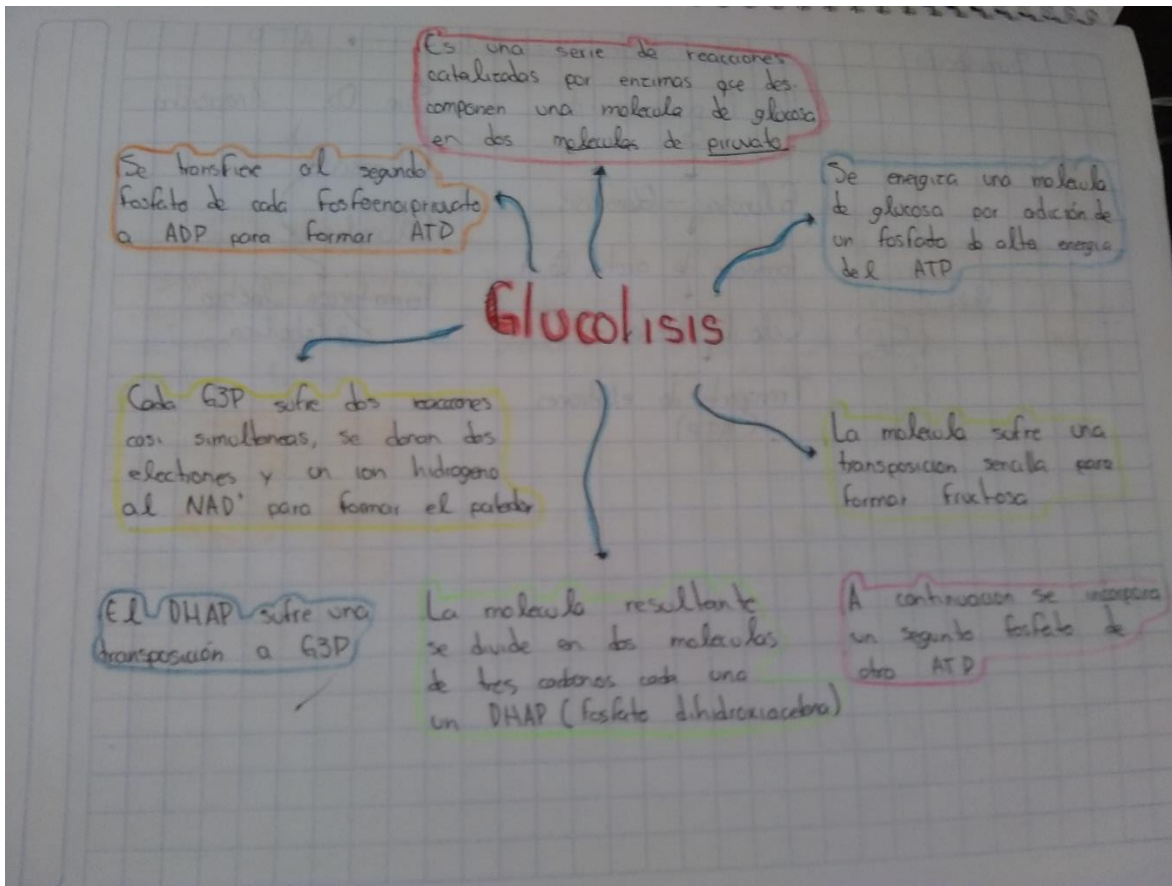 Es una serie de reacciones
catalizadas por enzimas que des-
componen una molecula de glucosa
en dos moleculas de piruvato
Se transfiere al segundo
fosfato de cada fosfoenolpiruvato
a ADP para formar ATD
Se energiza una molecula
de glucosa por adición de
un fosfato de alta energia
del ATP
Glucolisis
Cada G3P sufre dos reacciones
casi simultaneas, se donan dos
electrones y un ion hidrogeno
al NAD+ para formar el
La molecula sufre una
transposicion sencilla para
formar fructosa
El DHAP sufre una
transposición a G3P
La molecula resultante
se divide en dos moleculas
de tres carbonos cada una
un DHAP (fosfato dihidroxiacetona)
A continuacion se incorpora
un segunto fosfato de
otro ATD